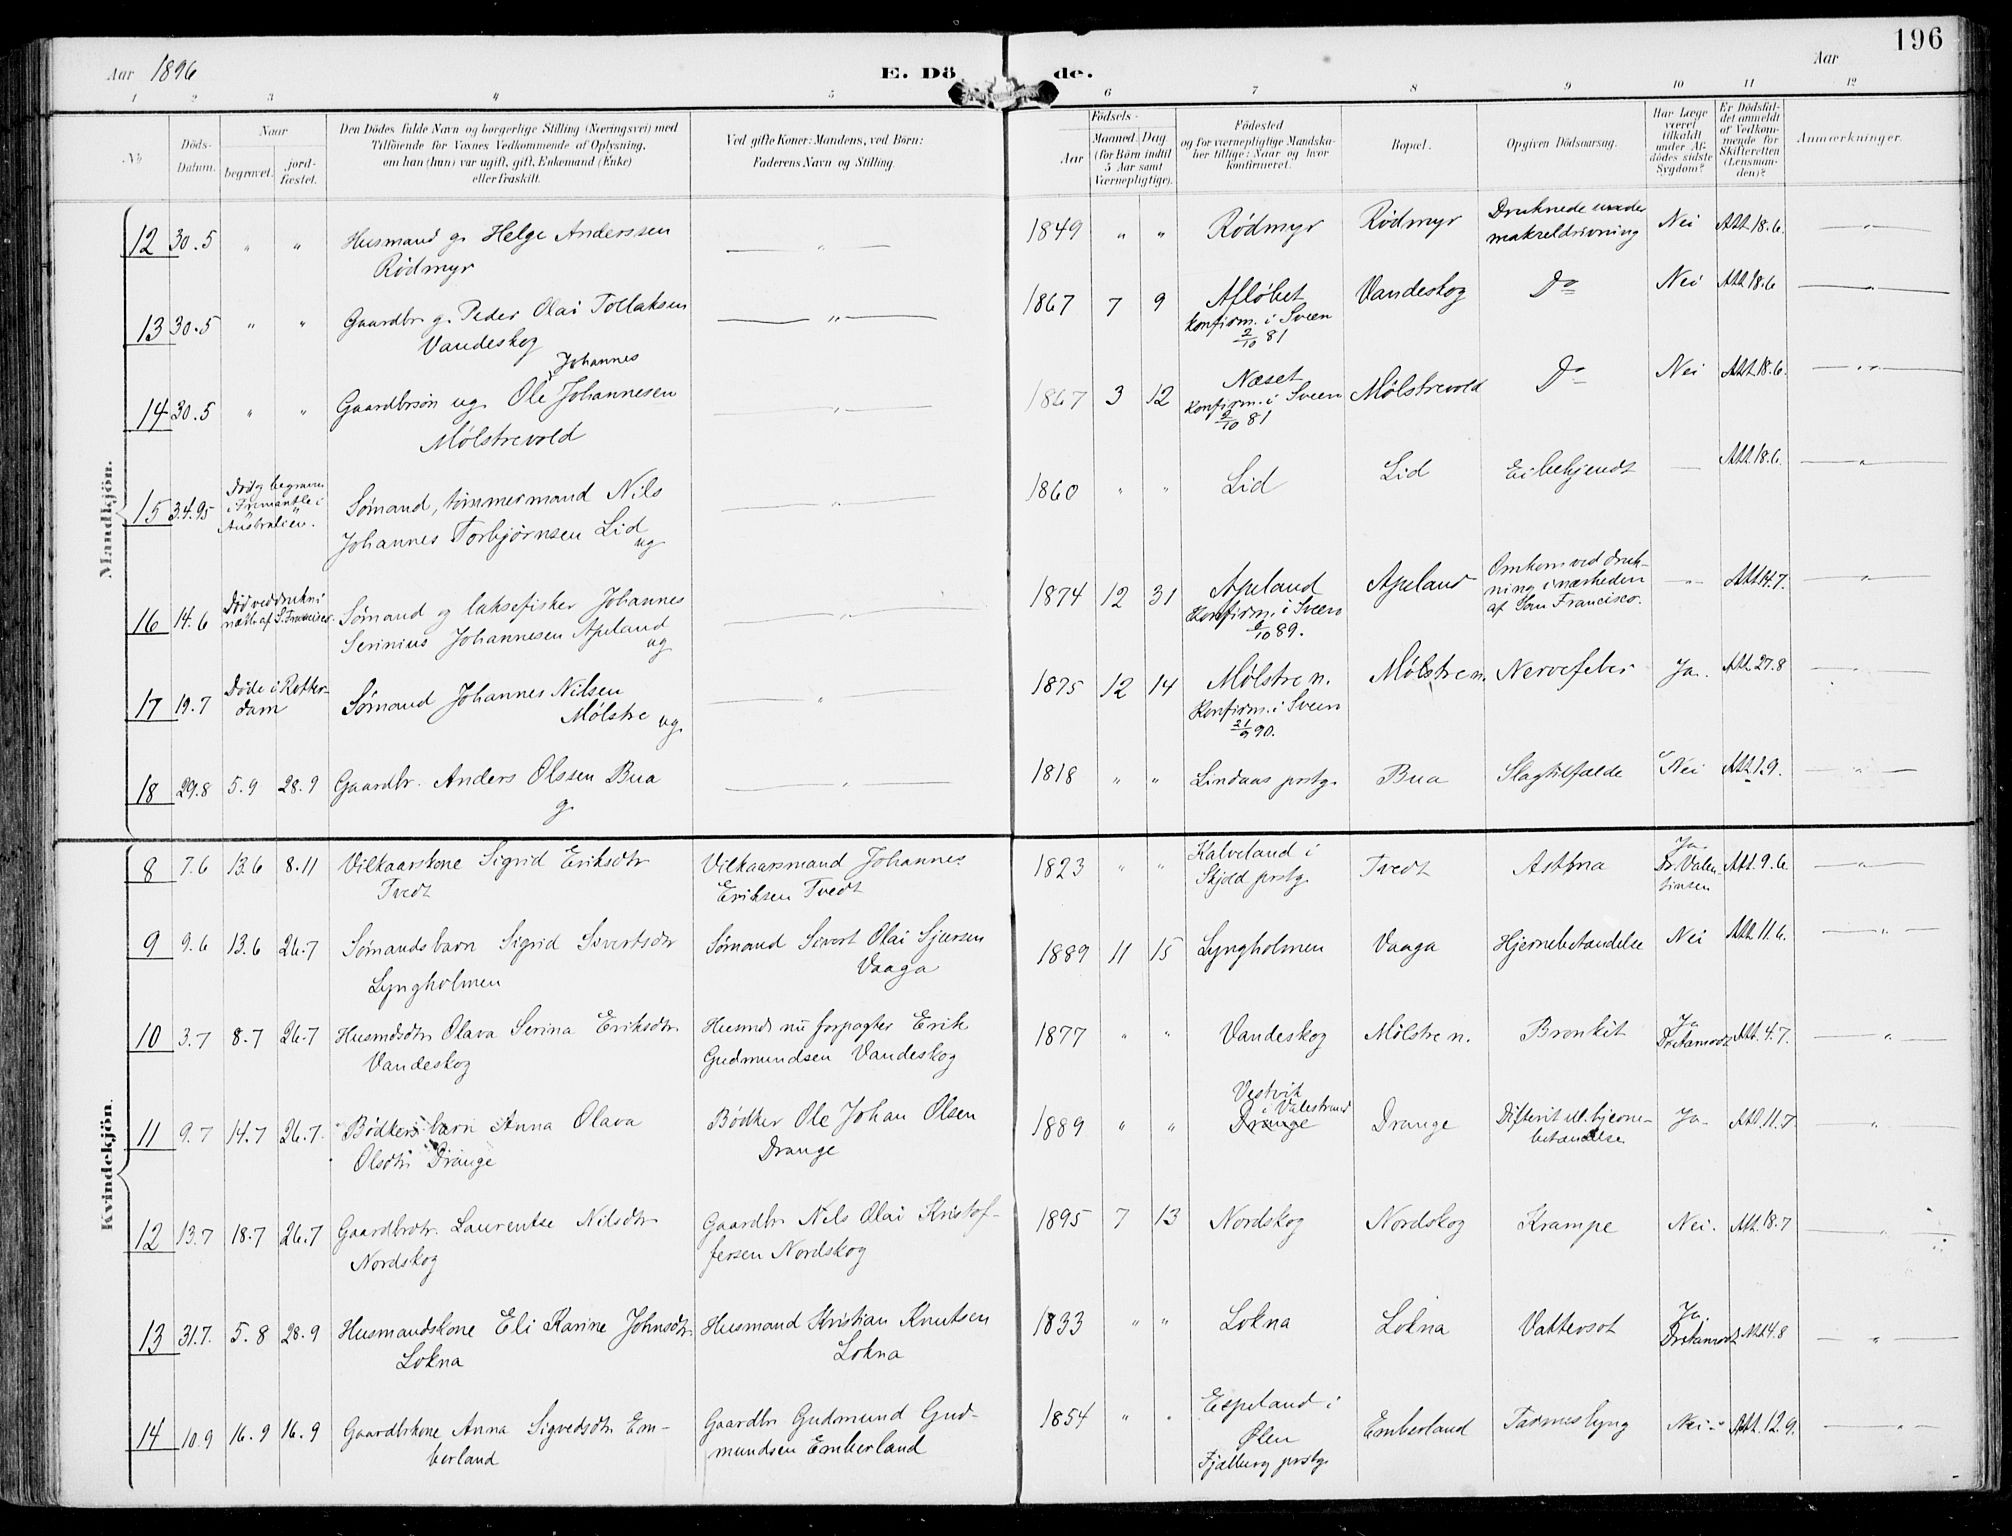 196
Aar 1896
E. Döde.
Aar
1 2 3 4 5 6 7 8 9 10 11 12
No
Döds-Datum.
Naar
begravet.
jordfæstet.
Den Dödes fulde Navn og borgerlige Stilling (Næringsvei) med
Tilföiende for Voxnes Vedkommende af Oplysning,
om han (hun) var ugift, gift, Enkemand (Enke)
eller fraskilt.
Ved gifte Koner: Mandens, ved Börn:
Faderens Navn og Stilling.
Födsels-
Aar
Maaned. Dag.
(for Börn indtil
5 Aar samt
Værnepligtige).
Födested
og for værnepligtige Mandskaber tillige: Naar og hvor
konfirmeret.
Bopæl.
Opgiven Dödsaarsag.
Har Læge
været
tilkaldt
under Afdödes sidste
Sygdom?
Er Dödsfaldet anmeldt
af Vedkommende for
Skifteretten
(Lensmanden)?
Anmærkninger.
Mandkjön.
12 30.5 " " Husmand g. Helge Anderssen — " — 1849 " " Rödmyr Rödmyr Druknede under Nei Att. 18.6. — " —
Rödmyr makreldrivning
13 30.5 " " Gaardbr g. Peder Olai Tollaksen — " — 1867 7 9 Aflöbet Vandeskog Do Nei Att 18.6 — " —
Vandeskog konfirm. i Sveen
2/10 81
14 30.5 " " Gaardbrsön ug. Ole Johannes Johannesen — " — 1867 3 12 Næset Mölstrevold Do Nei Att. 18.6. — " —
Mölstrevold konfirm. i Sveen
2/10 81
15 3.4.95 Död og begraven Sömand, tömmermand Nils — " — 1860 " " Lid Lid Ei bekjendt — Att. 18.6. — " —
i Frimantle i Johannes Torbjörnsen Lid
Australien. ug
16 14.6 Död ved drukn i Sömand og laksefisker Johannes — " — 1874 12 31 Apeland Apeland Omkom ved drukning i nærheden — " Att 14.7. — " —
nærh. af S. Francisco. Serinius Johannesen Apeland Konfirm. i Sveen af San Francisco.
ug 6/10 89.
17 19.7 Döde i Rotterdam Sömand Johannes Nilsen — " — 1875 12 14 Mölstre n. Mölstre n. Nervefeber Ja. Att. 27.8 — " —
Mölstre ug. Konfirm. i Sveen
21/9 90.
18 29.8 5.9 28.9 Gaardbr. Anders Olssen Bua — " — 1818 " " Lindaas prstg. Bua Slagtilfælde Nei Att. 1.9. — " —
g.
Kvindekjön.
8 7.6 13.6 8.11 Vilkaarskone Sigrid Eriksdtr Vilkaarsmand Johannes 1823 " " Kalveland i Tvedt Asthma Ja Att. 9.6. — " —
Tvedt Eriksen Tvedt Skjold prstg. Dr. Valentinsen
9 9.6 13.6 26.7 Sömandsbarn Sigrid Sivertsdtr Sömand Sivert Olai Sjursen 1889 11 15 Lyngholmen Vaaga Hjernebetændelse Nei Att. 11.6. — " —
Lyngholmen Vaaga
10 3.7 8.7 26.7 Husmdsdtr Olava Serina Eriksdtr. Husmd nu forpagter Erik 1877 " " Vandeskog Mölstre n. Bronkit Ja Att. 4.7. — " —
Vandeskog Gudmundsen Vandeskog
11 9.7 14.7 26.7. Bödkersbarn Anna Olava Bödker Ole Johan Olsen 1889 " " Vestvik i Valestrand Drange Difterit el. hjernebetændelse Ja Att. 11.7 — " —
Olsdtr Drange Drange Drange
12 13.7 18.7 26.7 Gaardbrdtr. Laurentse Nilsdtr Gaardbr Nils Olai Kristof- 1895 7 13 Nordskog Nordskog Krampe Nei. Att. 18.7 — " —
Nordskog fersen Nordskog
13 31.7. 5.8 28.9 Husmandskone Eli Karine Johnsdtr. Husmand Kristian Knutsen 1833 " " Lokna Lokna Vattersot Ja. Att 4.8 — " —
Lokna Lokna
14 10.9 16.9 16.9 Gaardbrkone Anna Sigvedsdtr Em- Gaardbr Gudmund Gud- 1854 " " Espeland i Emberland Tarmeslyng Nei Att. 12.9. — " —
berland mundsen Emberland Ölen
Fjælberg prstg.